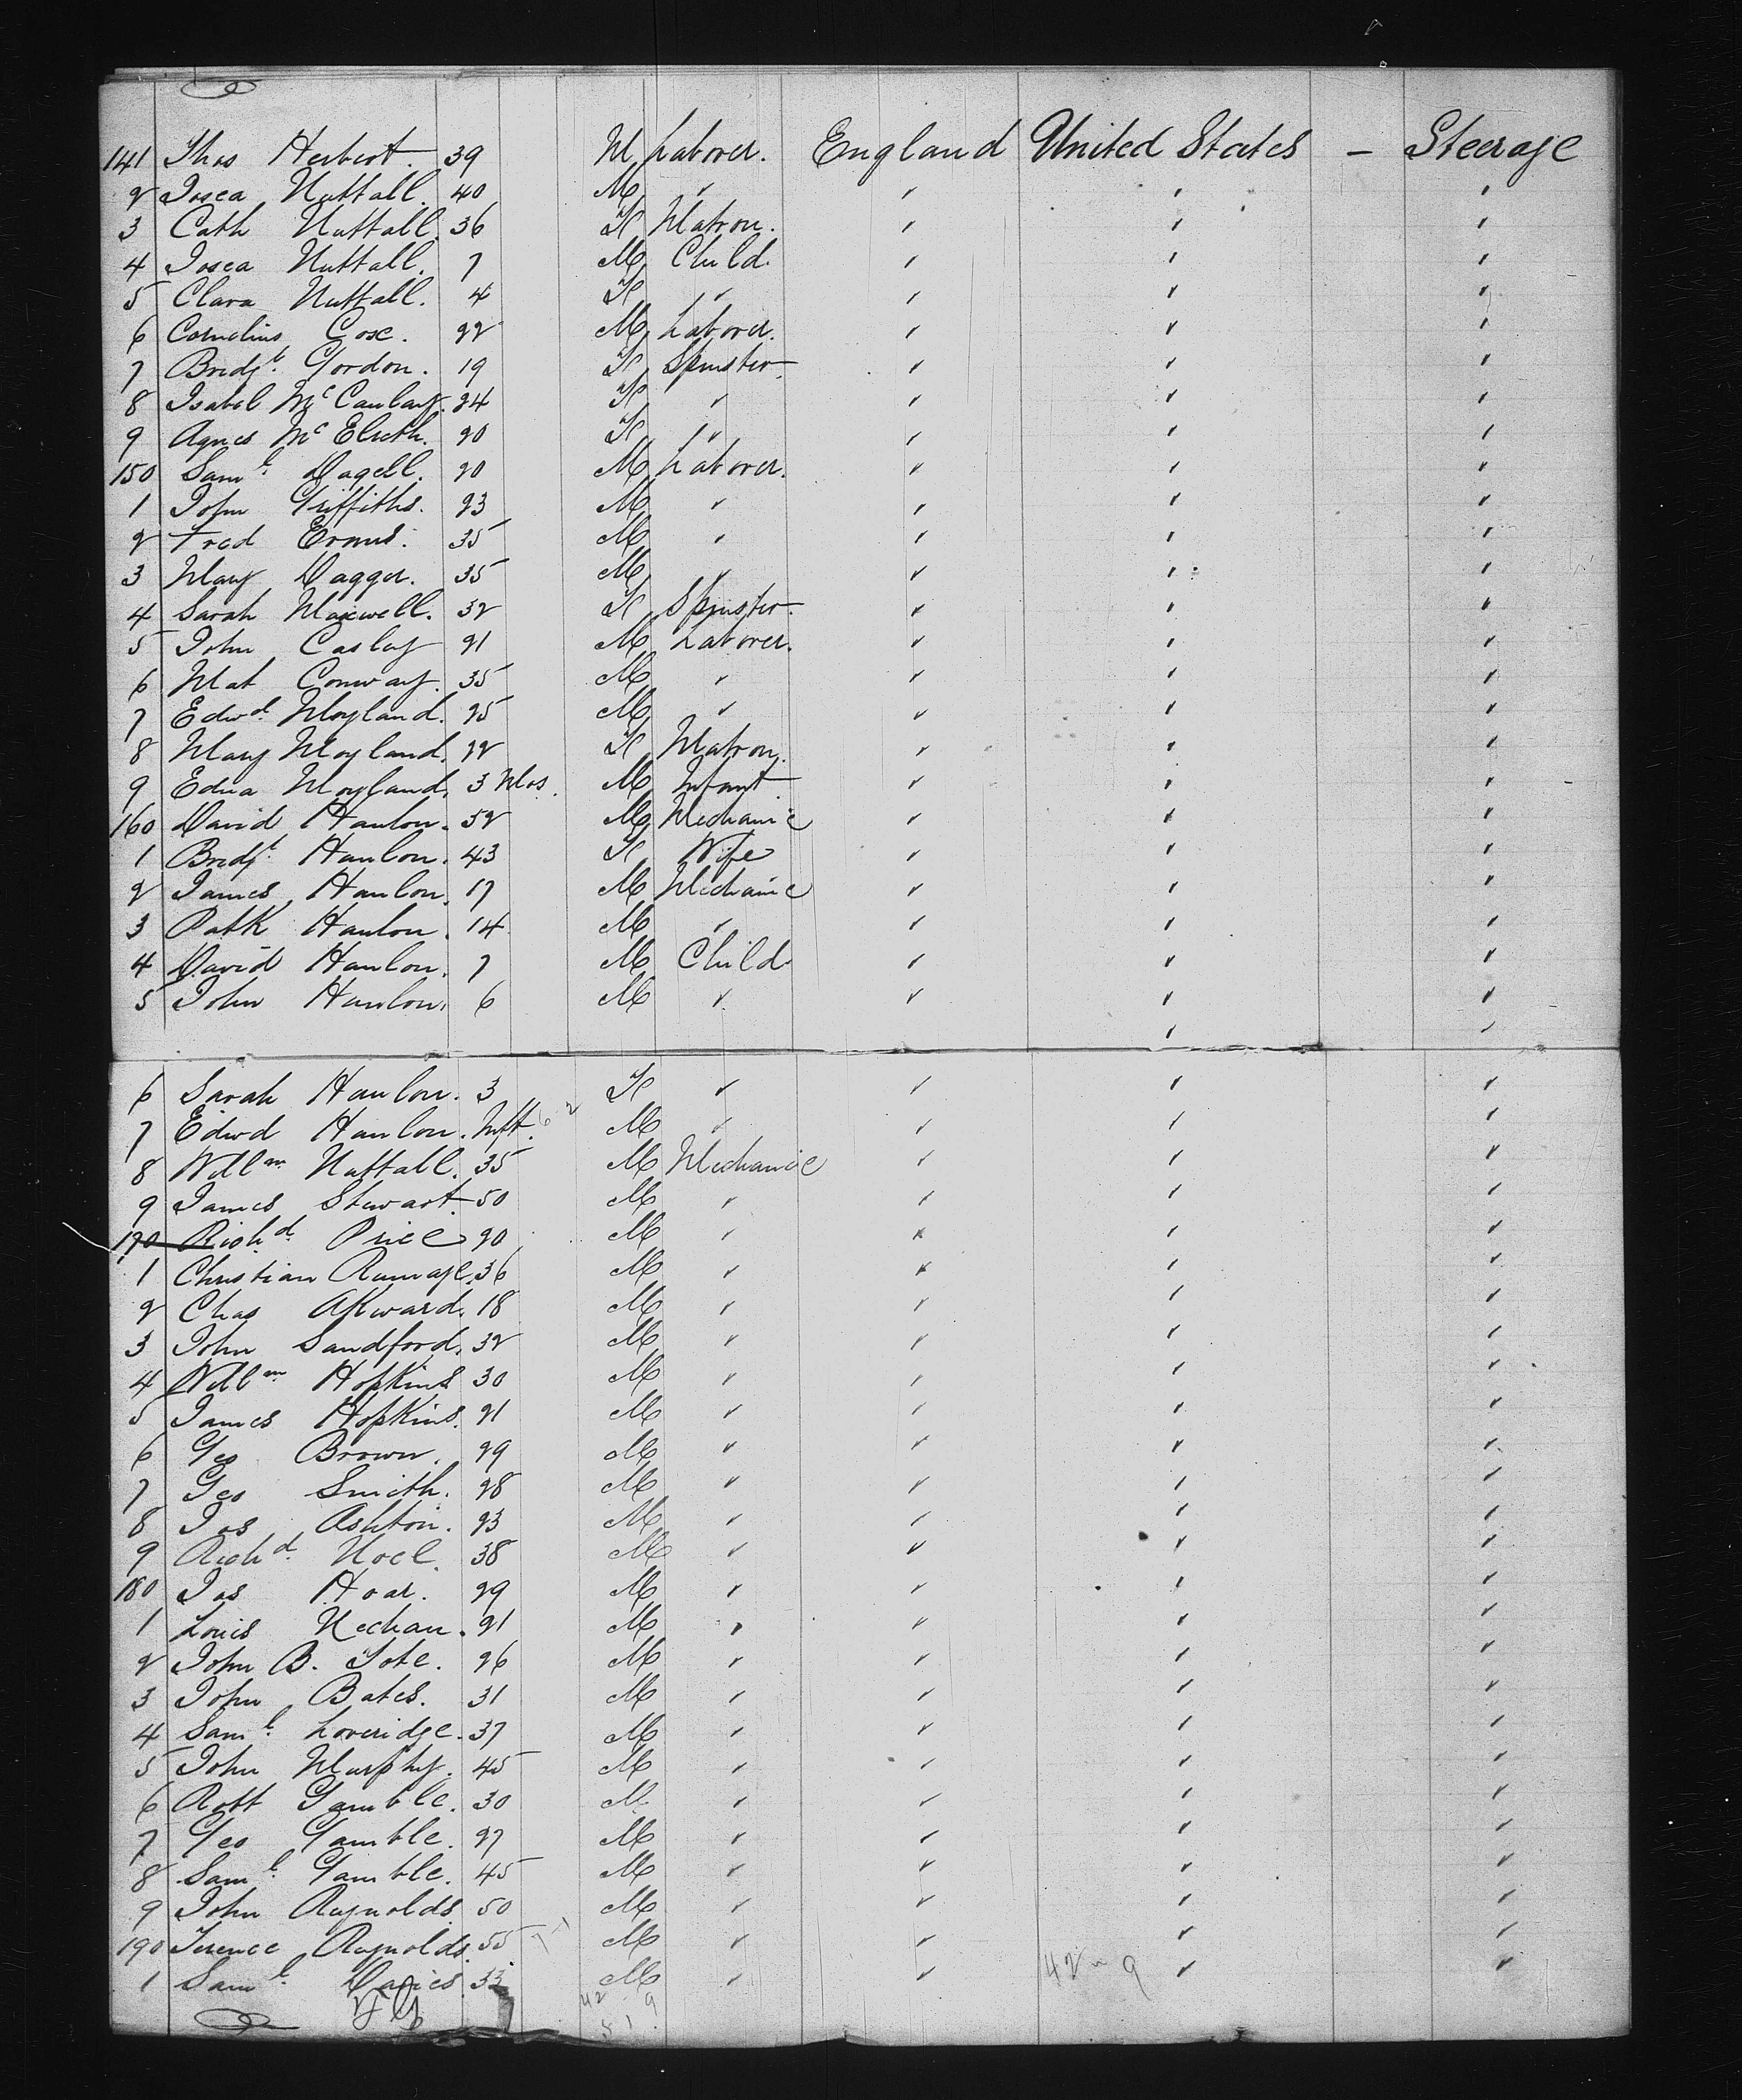 141 Thos Herbert. 39 M Laborer. England United States – Steerage
2 Josea Nuttall. 40 M " " " "
3 Cath Nuttall. 36 F Matron. " " "
4 Josea Nuttall. 7 M Child. " " "
5 Clara Nuttall. 4 F " " " "
6 Cornelius Cox. 22 M Laborer. " " "
7 Bridgt. Gordon. 19 F Spinster. " " "
8 Isabel McCaulay. 24 F " " " "
9 Agnes Mc 20 F " " " "
150 Saml. Dagell. 20 M Laborer. " " "
1 John Griffiths. 23 M " " " "
2 Fred 35 M " " " "
3 Mary Dagger. 35 M " " " "
4 Sarah Maxwell. 32 F Spinster. " " "
5 John Casley 21 M Laborer. " " "
6 Mat Conway. 35 M " " " "
7 Edwd. Moyland. 25 M " " " "
8 Mary Moyland. 22 F Matron. " " "
9 Edna Moyland. 3 Mos. M Infant " " "
160 David Hanlon. 52 M Mechanic " " "
1 Bridgt. Hanlon. 43 F Wife " " "
2 James Hanlon. 17 M Mechanic " " "
3 Patk Hanlon. 14 M " " " "
4 David Hanlon. 7 M Child " " "
5 John Hanlon. 6 M " " " "
" "
6 Sarah Hanlon. 3 F " " " "
7 Edwd Hanlon. Inft. M " " " "
8 Willm Nuttall. 35 M Mechanic " " "
9 James Stewart. 50 M " " " "
170 Richd. Price 20 M " " " "
1 Christian Rumage. 36 M " " " "
2 Chas Akward. 18 M " " " "
3 John Sandford. 32 M " " " "
4 Willm Hopkins 30 M " " " "
5 James Hopkins. 21 M " " " "
6 Geo Brown. 29 M " " " "
7 Geo Smith. 28 M " " " "
8 Jos Ashton. 23 M " " " "
9 Richd. Noel. 38 M " " " "
180 Jas Hoar. 29 M " " " "
1 Louis Nechan. 21 M " " " "
2 John B. 26 M " " " "
3 John Bates. 31 M " " " "
4 Saml. Loveridge. 37 M " " " "
5 John Murphy. 45 M " " " "
6 Robt Gamble. 30 M " " " "
7 Geo Gamble. 27 M " " " "
8 Saml. Gamble. 45 M " " " "
9 John Reynolds 50 M " " " "
190 Terence Reynolds. 55 M " " " "
1 Saml. Davies. 33 M " " " "
42 9
42 9
51